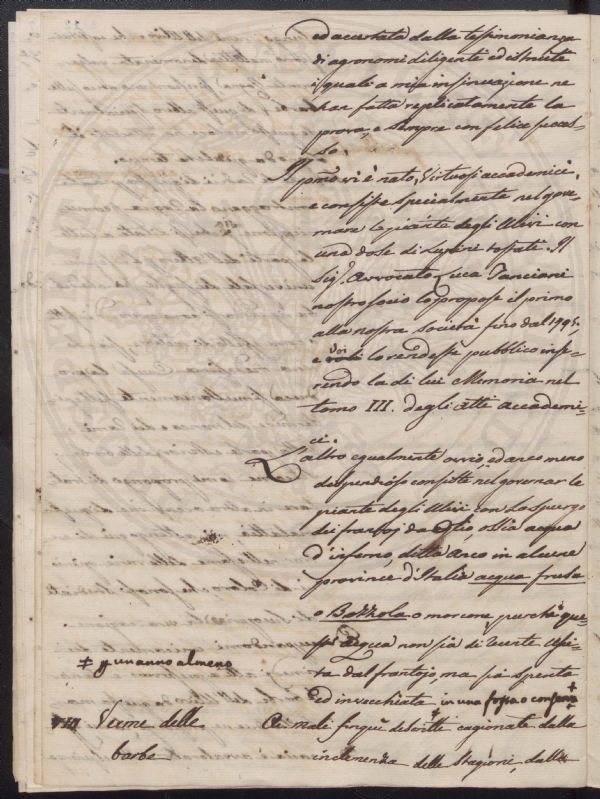 ed accertata dalla testimonianza
di agronomi diligenti ed istruite
i quali a mia insinuazione ne
han fatta replicatamente la
prova, e sempre con felice succes-
so.
Il pmo vi è noto, Virtuosi accademici,
e consiste specialmente nel gover-
nare le piante degli Ulivi con
una dose di Lupini tostati. Il
Sigr. Avvocato Luca Tanciani
nostro socio lo propose il primo
alla nostra società fino dal 1795.
e voi lo rendeste pubblico inse-
rendo la di lui Memoria nel
tomo III. degli atti accademi-
ci.
L'altro egualmente ovvio, ed anco meno
dispendioso consiste nel governar le
piante degli Ulivi con lo spurgo
dei frantoj da Olio, ossia acqua
d'inferno, detta anco in alcune
province d'Italia acqua frusa
o Bozzola o morcone purchè que-
st'acqua non già di recente usci-
ta dal frantojo, ma già spenta
ed invecchiata in una fossa o conserva
‡ p un anno almeno
VIII Verme delle
barbe
Ai mali finquì descritti cagionati dalla
inclemenza delle Stagioni, dalla